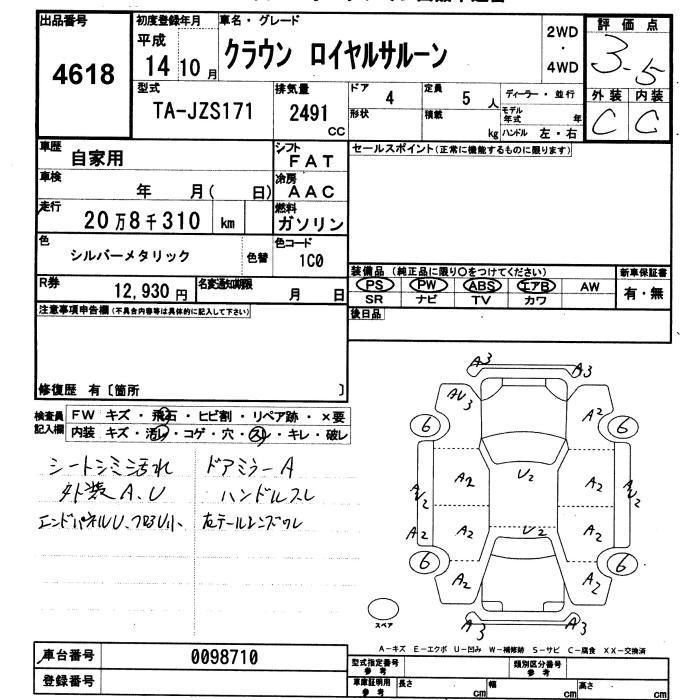 出品番号
4618
初度登録年月
平成
14年10月
車名・グレード
クラウン ロイヤルサルーン
2WD
・
4WD
評価点
3.5
外装 内装
C C
型式
TA-JZS171
排気量
2491
CC
ドア
4
定員
5人
形状
積載
kg
ディーラー・並行
モデル年式 年
ハンドル 左・右
車歴
自家用
シフト
FAT
車検
年 月( 日)
冷房
AAC
走行
20万8千310 km
燃料
ガソリン
色
シルバーメタリック
色替
色コード
1C0
R券
12,930円
名変通知期限
月 日
セールスポイント(正常に機能するものに限ります)
装備品 (純正品に限り〇をつけてください)
PS PW ABS エアB AW
SR ナビ TV カワ
新車保証書
有・無
後日品
注意事項申告欄(不具合内容等は具体的に記入して下さい)
修復歴 有〔箇所 〕
検査員
記入欄
FW キズ・飛石・ヒビ割・リペア跡・×要
内装 キズ・汚レ・コゲ・穴・スレ・キレ・破レ
シートシミ汚れ ドアミラーA
外装A、U ハンドルスレ
エンドパネルU、フロアU小、左テールレンズワレ
A3 A3
AU3 A2
6 6
U2
A2 A2
AU2 AU2
A2 A2 U2 A2
6 6
A2 A2
A3 A3
スペア
A-キズ E-エクボ U-凹み W-補修跡 S-サビ C-腐食 XX-交換済
車台番号 0098710
登録番号
型式指定番号
参考
類別区分番号
参考
車庫証明用
参考
長さ cm
幅 cm
高さ cm